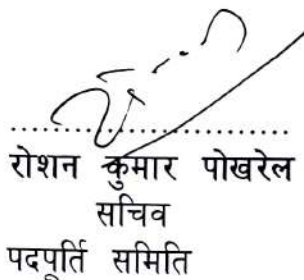 रोशन कुमार पोखरेल
सचिव
पदपूर्ति समिति